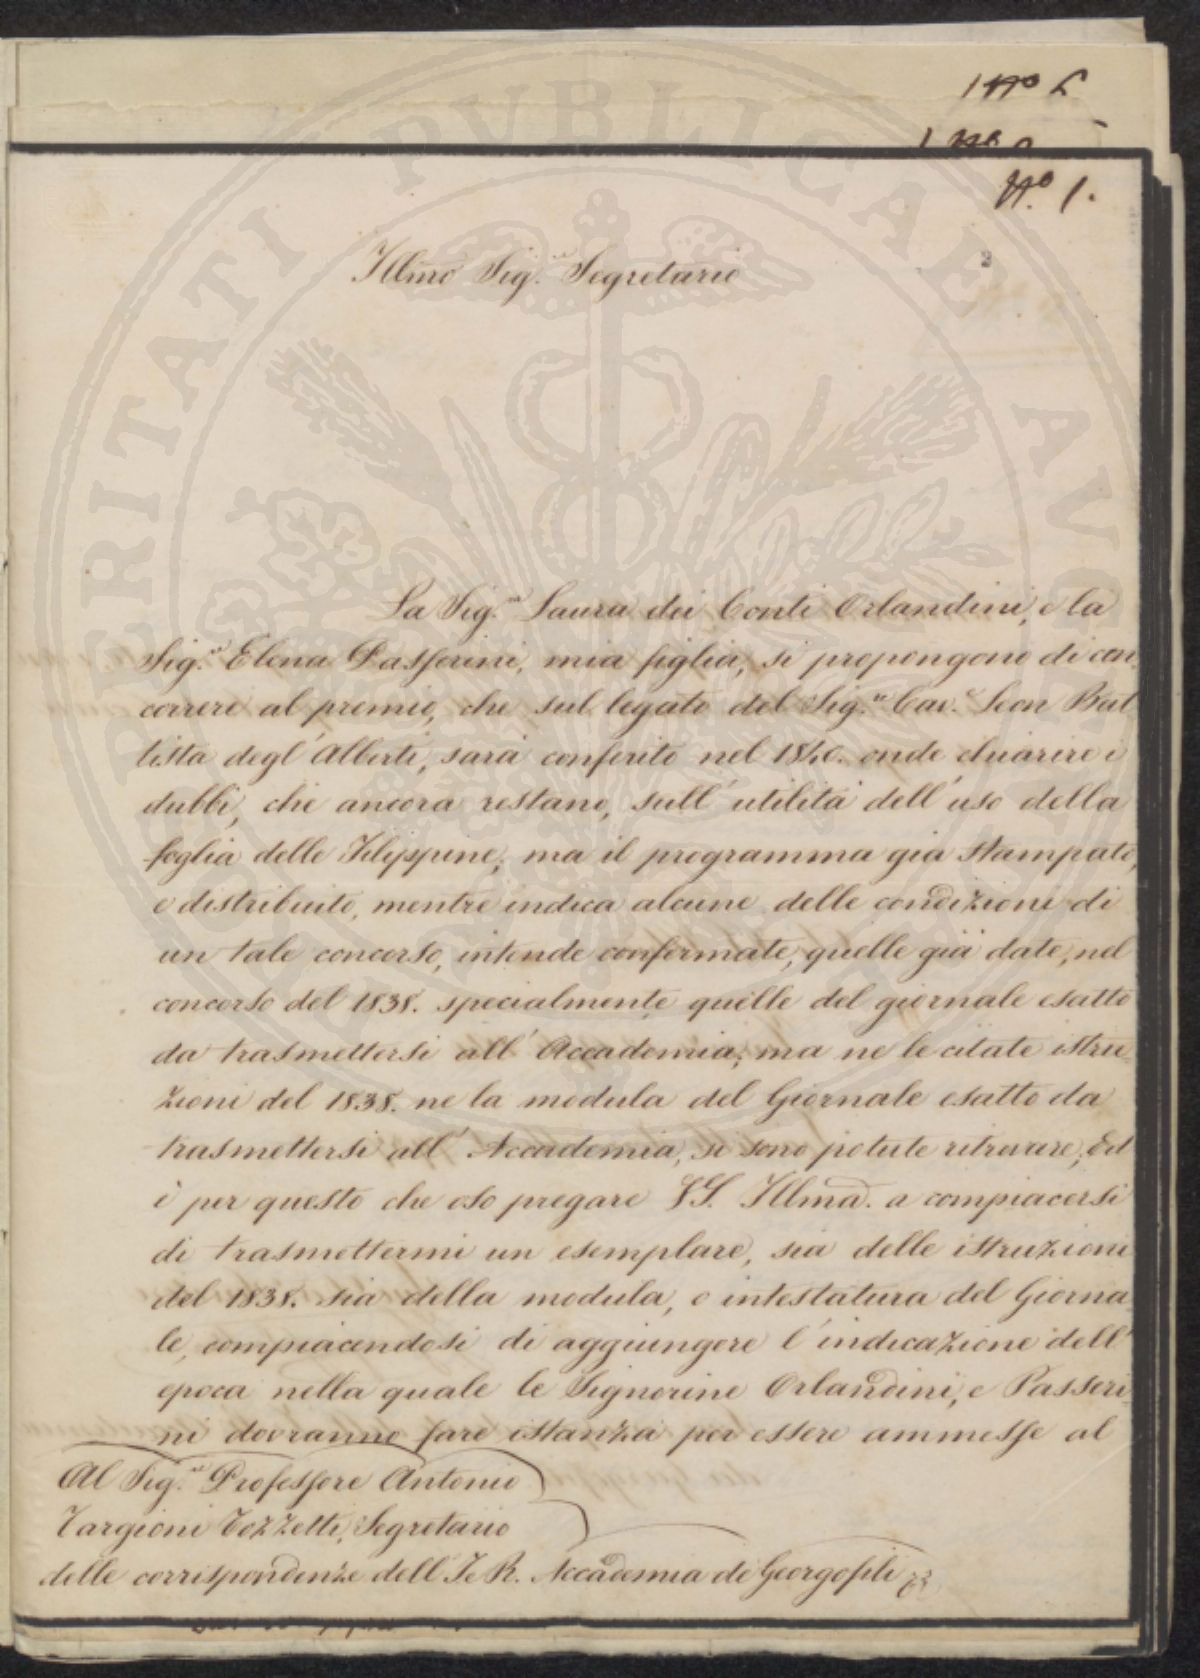 N.º 1.
Illmo Sig.re Segretario
La Sig.ra Laura dei Conti Orlandini, e la
Sig.ra Elena Passerini, mia figlia, si propongono di con
correre al premio, che sul legato del Sig.re Cav.e Leon Bat
tista degl'Alberti, sarà conferito nel 1840. onde chiarire i
dubbi, che ancora restano, sull'utilità dell'uso della
foglia delle Filippine; ma il programma già stampato,
e distribuito, mentre indica alcune delle condizioni di
un tale concorso, intende confermate, quelle già date, nel
concorso del 1838. specialmente quelle del giornale esatto
da trasmettersi all'Accademia; ma ne le citate istru
zioni del 1838. ne la modula del Giornale esatto da
trasmettersi all'Accademia, si sono potute ritrovare; Ed
è per questo che oso pregare VS. Illma. a compiacersi
di trasmettermi un esemplare, sia delle istruzioni
del 1838. sia della modula, o intestatura del Giorna
le, compiacendosi di aggiungere l'indicazione dell'
epoca nella quale le Signorine Orlandini, e Passeri
ni dovranno fare istanza per essere ammesse al
Al Sig.re Professore Antonio
Targioni Tozzetti, Segretario
delle corrispondenze dell'I e R. Accademia de Georgofili
PUBLICAE
AVGENDAE
PROSPERITATI